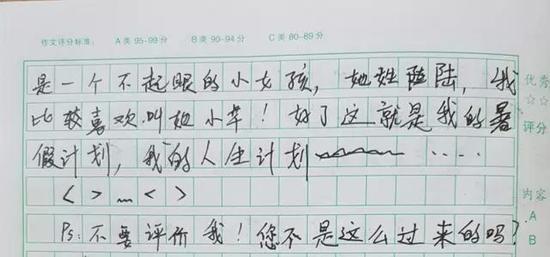 作文评分标准： A类95-99分 B类90-94分 C类80-89分
是一个不起眼的小女孩，她姓陆，我
比较喜欢叫她小草！好了这就是我的暑
假计划，我的人生计划~~~~ ....
< > … < >
Ps:不要评价我！您不是这么过来的吗？
优秀
☆☆
评分
内容
A
B